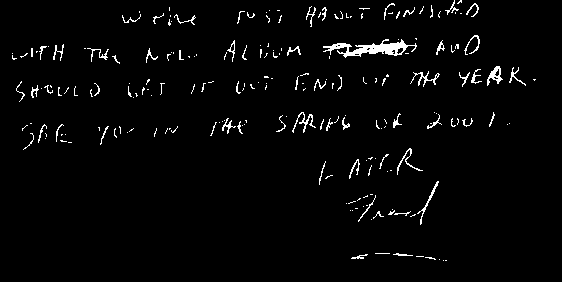 WE'RE JUST ABOUT FINISHED
WITH THE NEW ALBUM AND
SHOULD GET IT OUT END OF THE YEAR.
SEE YOU IN THE SPRING OF 2001.
LATER